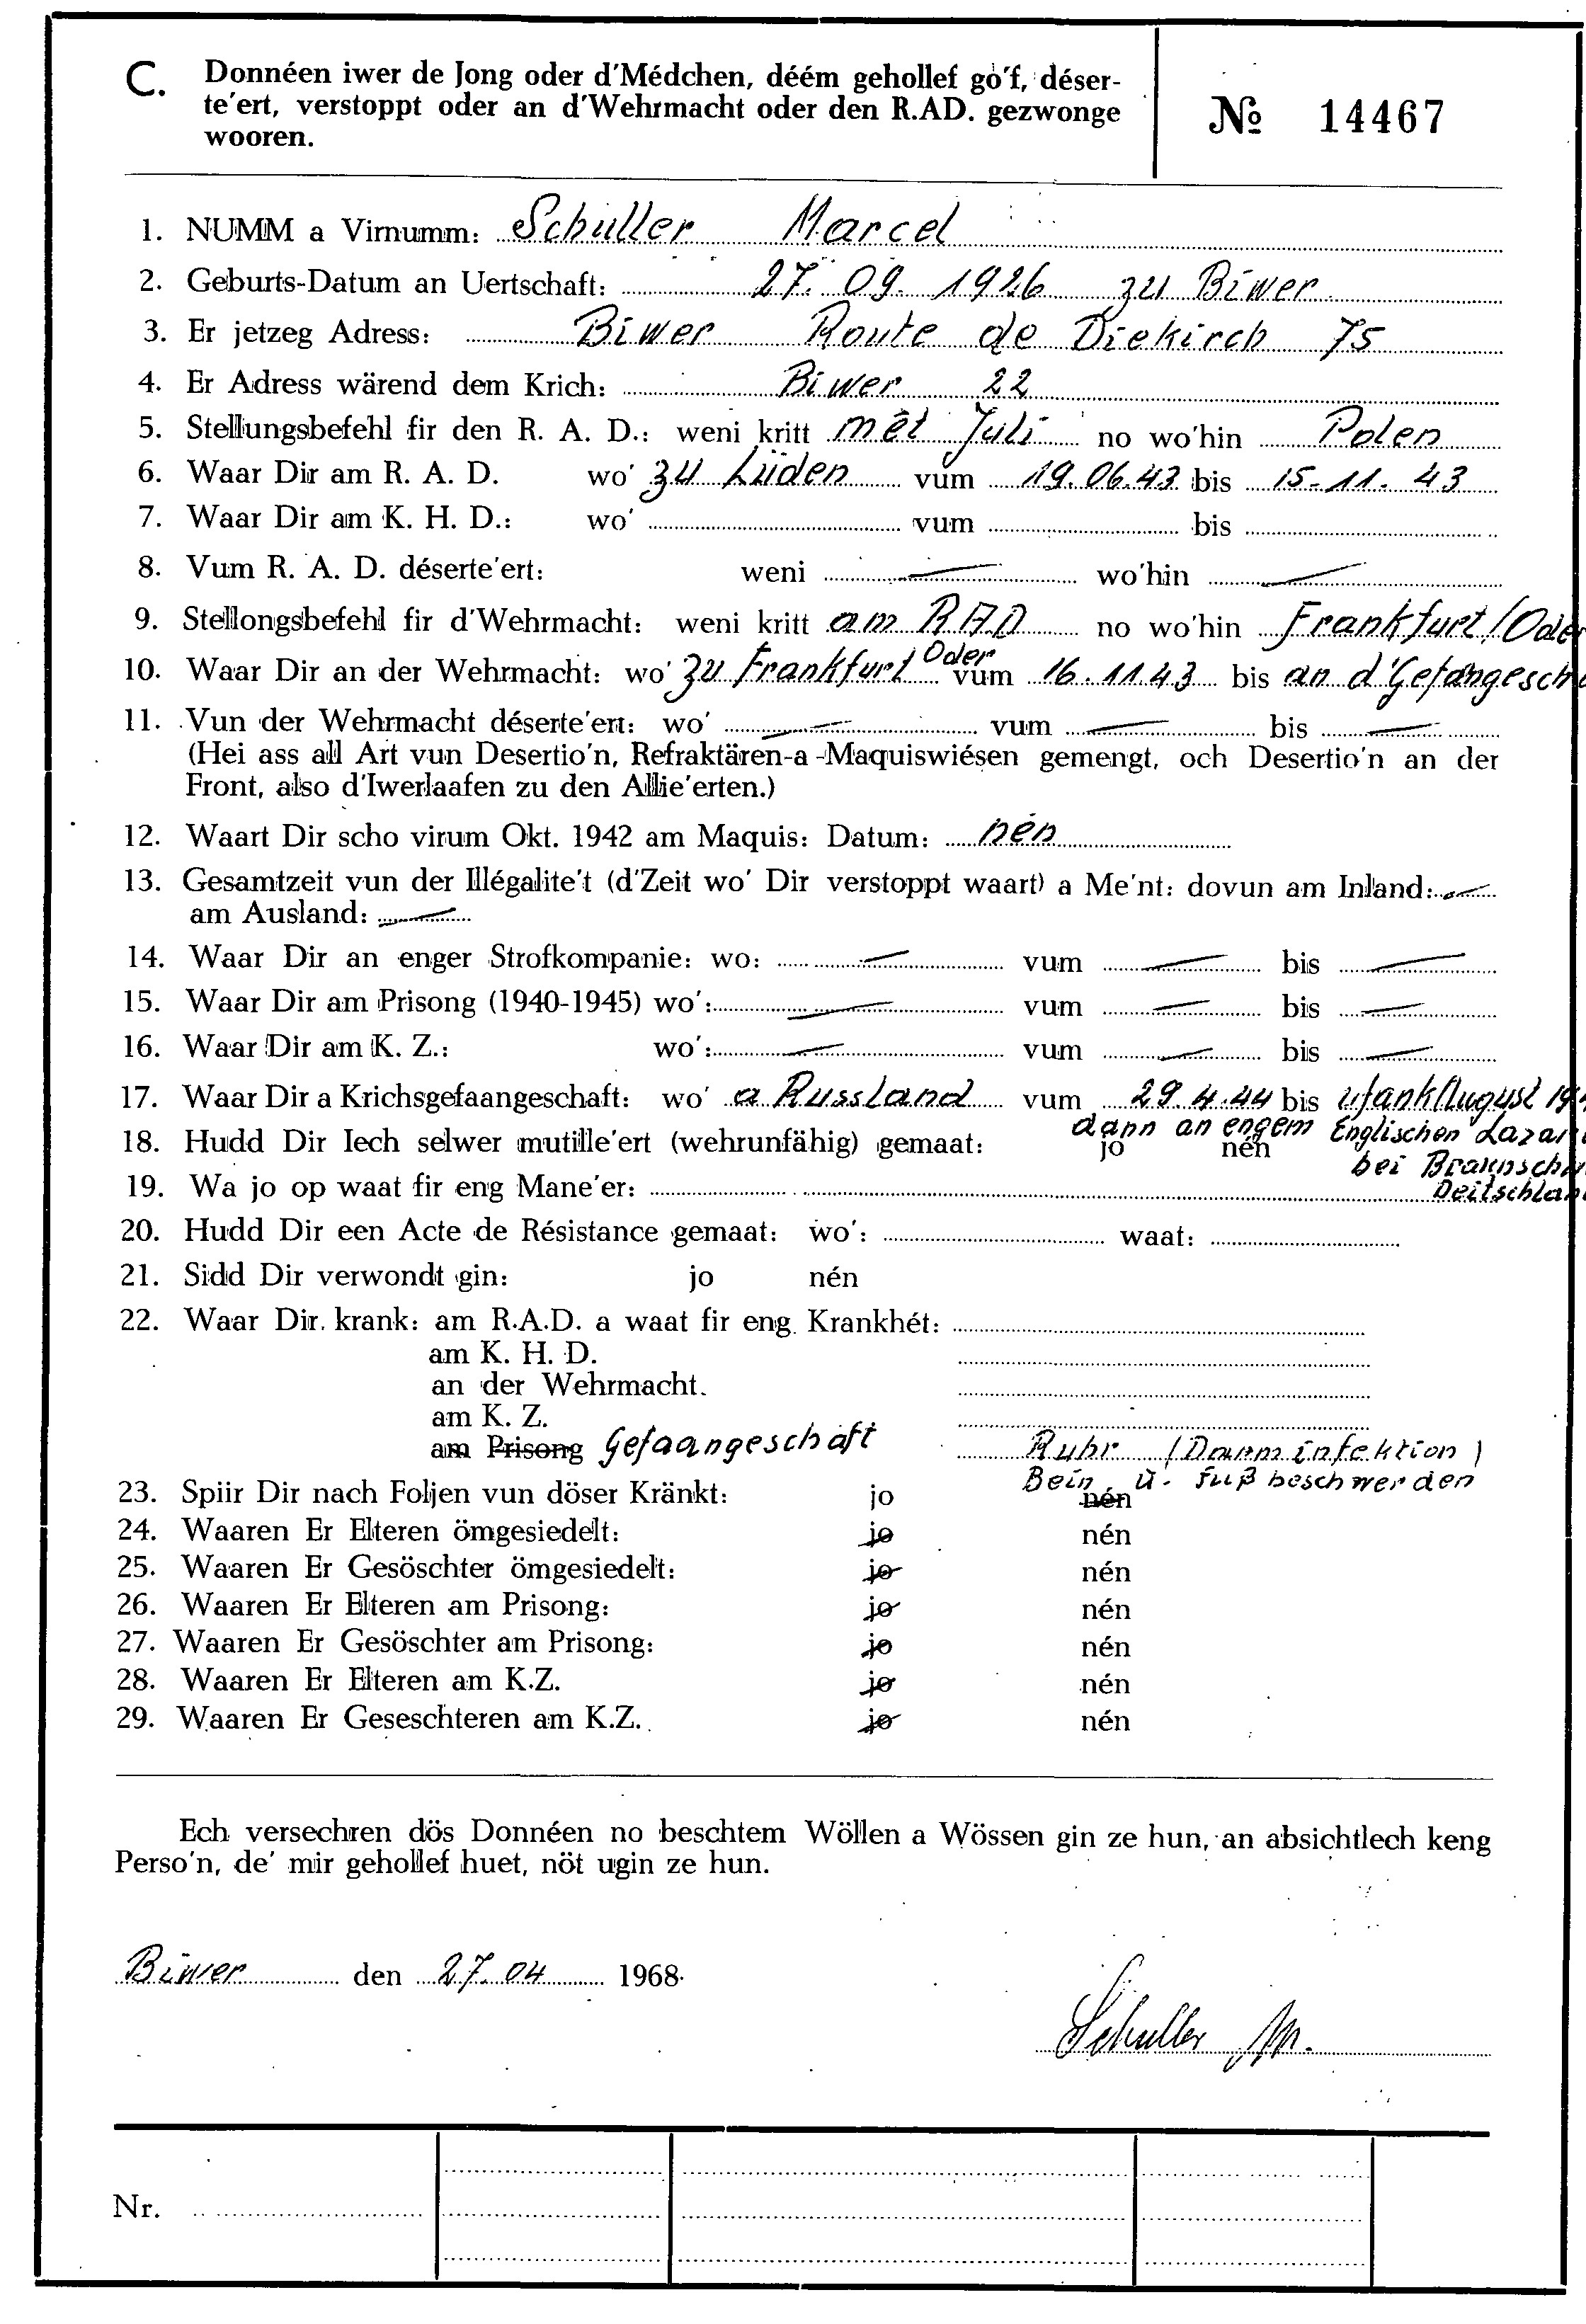 C. Donnéen iwer de Jong oder d'Médchen, déém gehollef go'f, déser-
te'ert, verstoppt oder an d'Wehrmacht oder den R.AD. gezwonge
wooren.
№ 14467
1. NUMM a Virnumm: Schuller Marcel
2. Geburts-Datum an Uertschaft: 27. 09. 1926 zu Biwer
3. Er jetzeg Adress: Biwer Route de Diekirch 75
4. Er Adress wärend dem Krich: Biwer 22
5. Stellungsbefehl fir den R. A. D.: weni kritt mêt Juli no wo'hin Polen
6. Waar Dir am R. A. D. wo' zu Lüden vum 19.06.43 bis 15.11.43
7. Waar Dir am K. H. D.: wo' vum bis
8. Vum R. A. D. déserte'ert: weni — wo'hin —
9. Stellongsbefehl fir d'Wehrmacht: weni kritt am RAD no wo'hin Frankfurt/Oder
10. Waar Dir an der Wehrmacht: wo' zu Frankfurt Oder vum 16.11.43 bis an d'Gefangesch
11. Vun der Wehrmacht déserte'ert: wo' — vum — bis —
(Hei ass all Art vun Desertio'n, Refraktären-a-Maquiswiésen gemengt, och Desertio'n an der
Front, also d'Iwerlaafen zu den Allie'erten.)
12. Waart Dir scho virum Okt. 1942 am Maquis: Datum: nén
13. Gesamtzeit vun der Illégalite't (d'Zeit wo' Dir verstoppt waart) a Me'nt: dovun am Inland: —
am Ausland: —
14. Waar Dir an enger Strofkompanie: wo: — vum — bis —
15. Waar Dir am Prisong (1940-1945) wo': — vum — bis —
16. Waar Dir am K. Z.: wo': — vum — bis —
17. Waar Dir a Krichsgefaangeschaft: wo' a Russland vum 29.4.44 bis ufank August 19
dann an engem Englischen Lazar
18. Hudd Dir Iech selwer mutille'ert (wehrunfähig) gemaat: jo nén
bei Braunsch
19. Wa jo op waat fir eng Mane'er: Deitschlan
20. Hudd Dir een Acte de Résistance gemaat: wo': waat:
21. Sidd Dir verwondt gin: jo nén
22. Waar Dir. krank: am R.A.D. a waat fir eng Krankhét:
am K. H. D.
an der Wehrmacht.
am K. Z.
am Prisong Gefaangeschaft Ruhr (Darminfektion)
Bein u. Fuß beschwerden
23. Spiir Dir nach Foljen vun döser Kränkt: jo nén
24. Waaren Er Elteren ömgesiedelt: jo nén
25. Waaren Er Gesöschter ömgesiedelt: jo nén
26. Waaren Er Elteren am Prisong: jo nén
27. Waaren Er Gesöschter am Prisong: jo nén
28. Waaren Er Elteren am K.Z. jo nén
29. Waaren Er Geseschteren am K.Z. jo nén
Ech versechren dös Donnéen no beschtem Wöllen a Wössen gin ze hun, an absichtlech keng
Perso'n, de' mir gehollef huet, nöt ugin ze hun.
Biwer den 27.04 1968
Schuller M.
Nr.